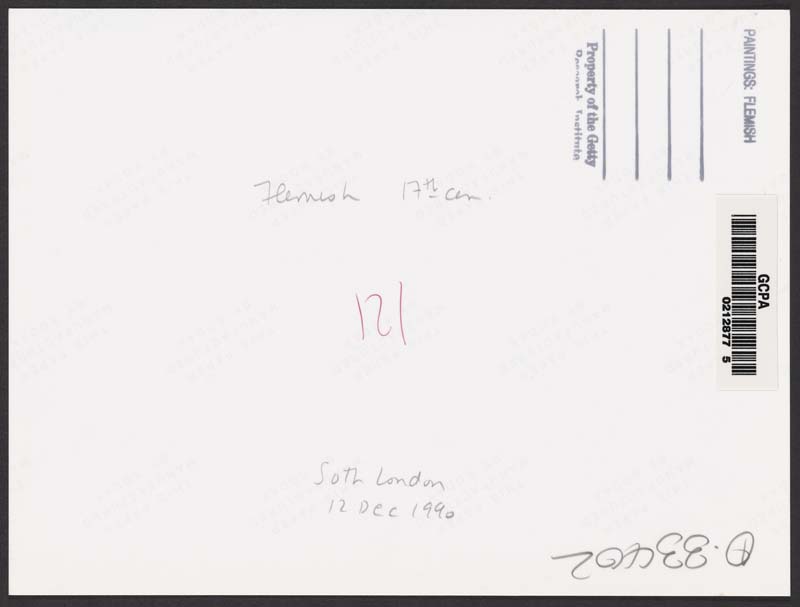 PAINTINGS: FLEMISH
Property of the Getty
Research Institute
GCPA
0212877 5
Flemish 17th cen.
121
Soth London
12 Dec 1990